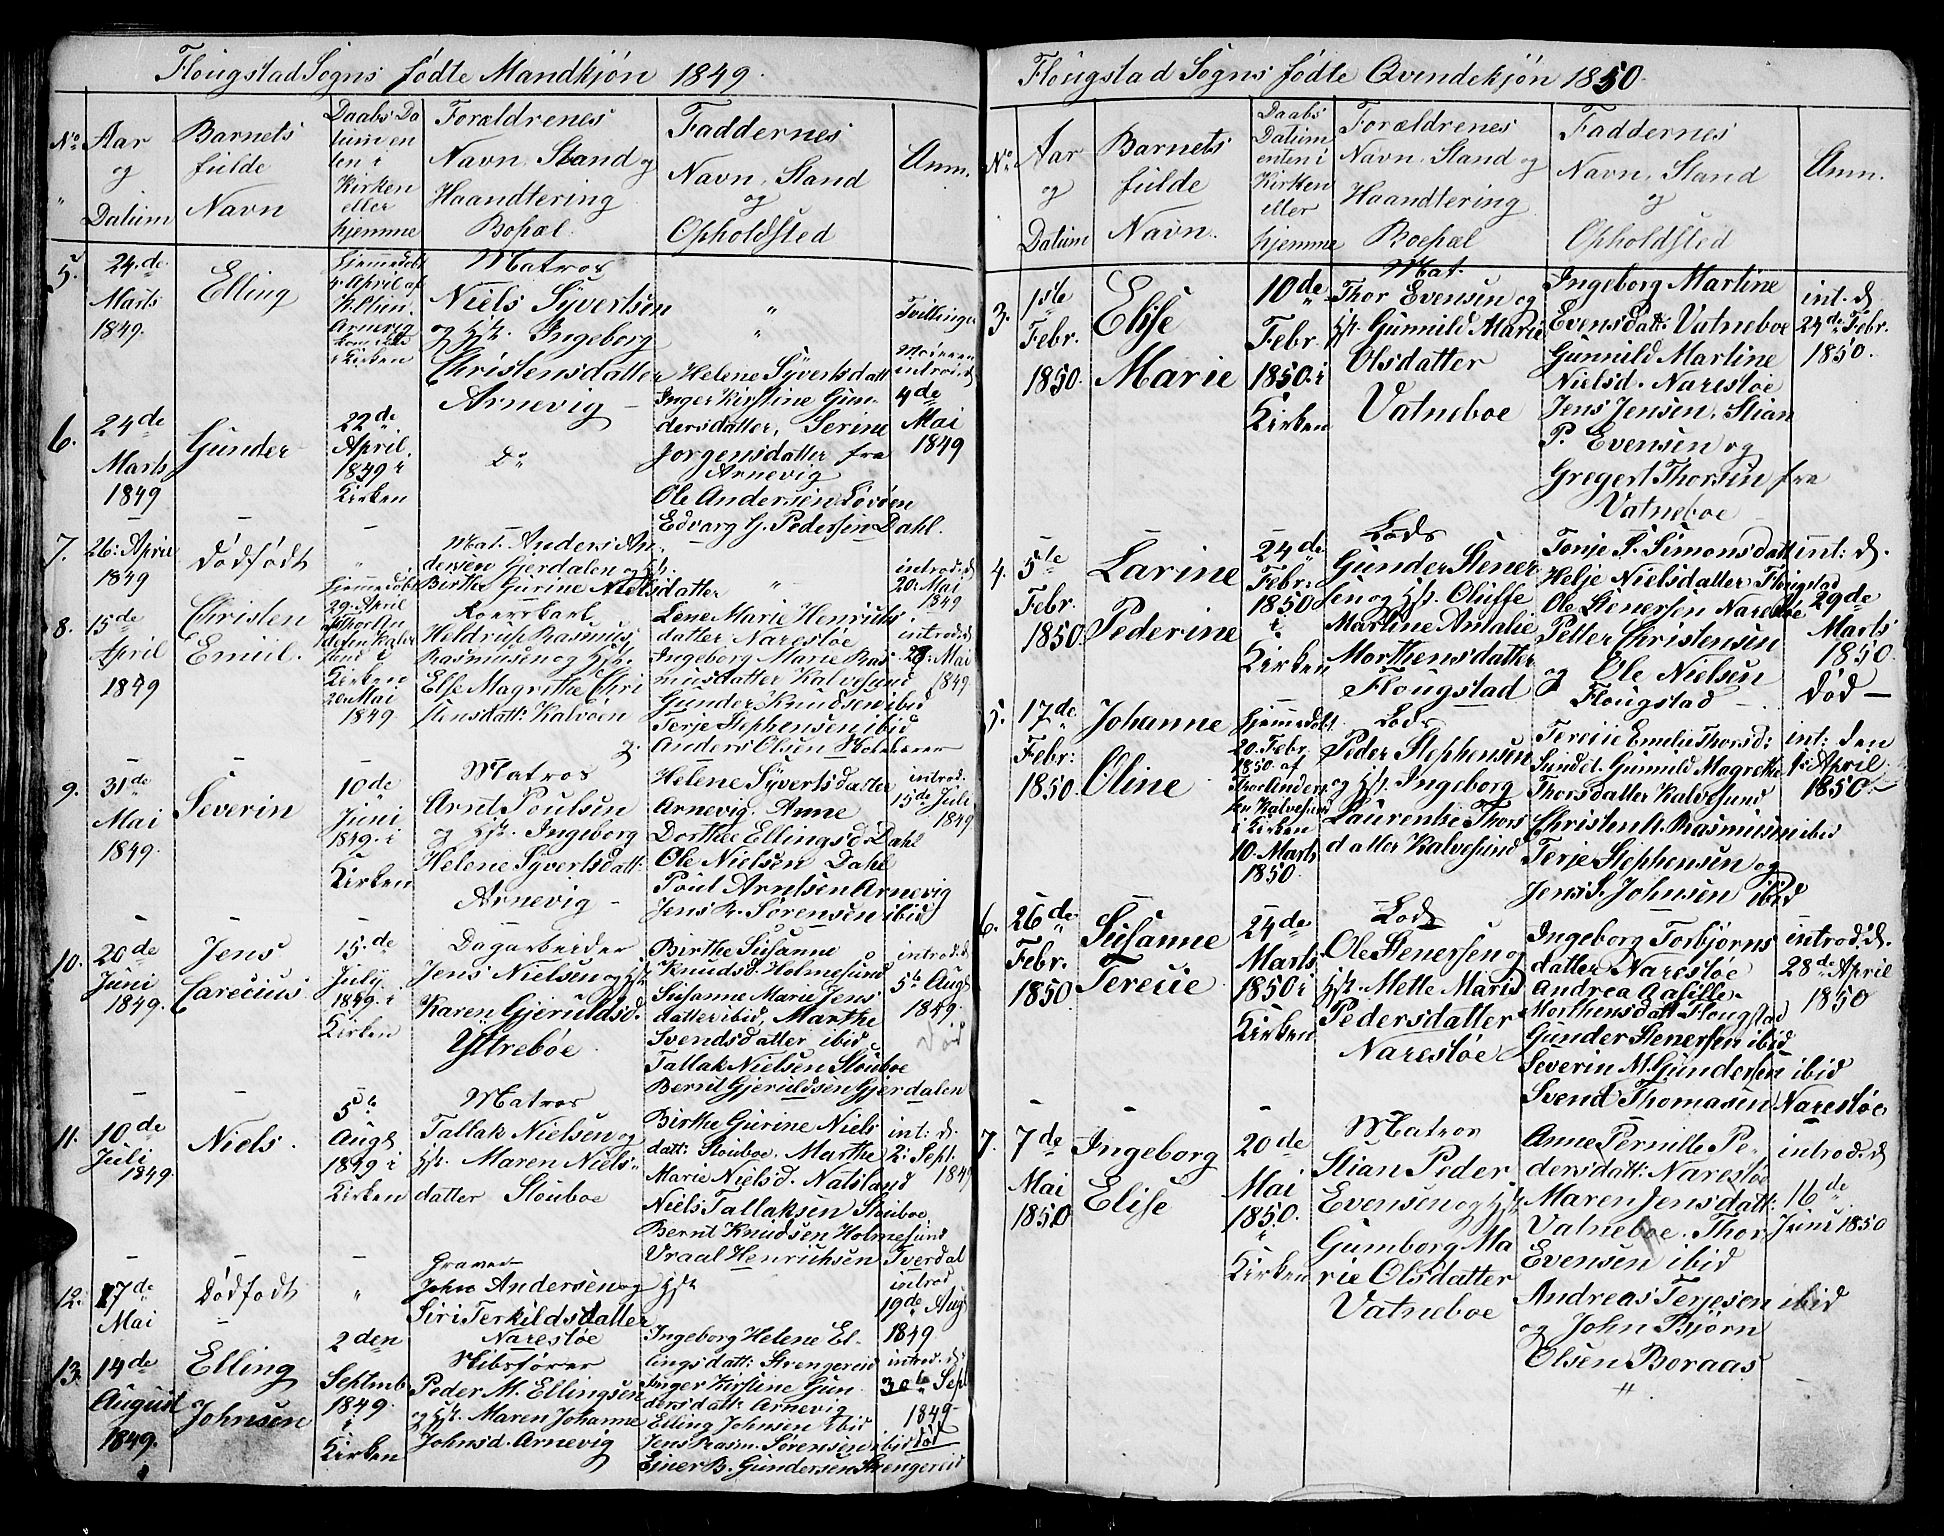 Flougstad Sogns fødte Mandkjøn 1849.
No.
Aar
og
Datum
Barnets
fulde
Navn
Daabs Da
tum en
ten i
Kirken
eller
hjemme
Forældrenes
Navn, Stand og
Haandtering
Bopæl.
Faddernes
Navn, Stand
og
Opholdsted
Anm.
5.
24.de
Marts
1849.
Elling
Hjemmedøbt
April af
Arnevig
Kirken
Matros
Niels Syvertsen
og Hst. Ingeborg
Christensdatter
Arnevig
"
"
Tvillinger
6.
24de
Marts
1849
Gunder
22de
April.
1849 i
Kirken
Do
Helene Syvertsdatt
Inger Kirstine Gun-
dersdatter, Serine
Jorgensdatter fra
Arnevig
Ole Andersen Løvøen
Edvarg G. Pedersen Dahl.
Moderen
introd. d.
4de
Mai
1849
7.
26: April
1849
Dødfødt
"
Mat. Anders An-
dersen Gjerdalen og Hst.
Birthe Gurine Nielsdatter
"
introd. d.
20: Mai
1849
8.
15de
April
1849
Christen
Emiil.
Hjemmedøbt
29. April
af Thor An
dersen Kalve
sund i
Kirken
20 Mai
1849
Heldrup Rasmus
Rasmusen og Hst.
Else Magrethe Chri
stensdatt: Kalvøen
Lene Marie Henriks
datter Narestøe
Ingeborg Marie Ras-
musdatter Kalvesund
Gunder Knudsen ibid
Terje Stephensen ibid
Anders Olsen
introd. d.
Mai
1849
9.
31de
Mai
1849.
Severin
10de
Juni
1849. i
Kirken
Matros
Arnt Poulsen
og Hst. Ingeborg
Helene Syvertsdatt:
Arnevig
Helene Syvertsdatter
Arnevig. Anne
Dorthe Ellingsd. Dahl
Ole Nielsen Dahl
Poul Arntsen Arnevig
Jens R. Sørensen ibid
introd.
15de Juli
1849
10.
20de
Juni
1849.
Jens
Carecius
15.de
July
1849. i
Kirken
Dagarbeider
Jens Nielsen og Hst.
Karen Gjeruldsd.
Yttrebøe
Birthe Susanne
Knudsd. Holmesund
Susanne Marie Jens
datter ibid, Marthe
Svendsdatter ibid
Tallak Nielsen Stouboe
Bernt Gjeruldsen Gjerdalen
introd. d.
5te Aug
1849.
Død
11.
10de
Juli
1849.
Niels.
5te
Augs
1849 i
Kirken
Matros
Tallak Nielsen og
Hst. Maren Niels-
datter Stouboe
Birthe Gurine Niels
datt: Stouboe. Marthe
Marie Nielsd. Natsland
Niels Tallaksen Stouboe
Bernt Knudsen Holmesund
Vraal Henriksen Tverdal
int. d.
2: Sept.
1849
12.
17de
Mai
Dødfødt
"
John Andersen og Hst.
Siri Terkildsdatter
Narestøe
introd
19de Aug
1849
13.
14de
August
1849.
Elling
Johnsen
2den
Septemb
1849.
i
Kirken
Skibsfører
Peder M. Ellingsen
og Hst. Maren Johanne
Johnsd. Arnevig
Ingeborg Helene El-
lingsdatt: Strengereid
Inger Kirstine Gun-
dersdatt. Arnevig
Elling Johnsen ibid
Jens Rasm. Sørensen ibid
Ejner B. Gundersen Strengereid
introd. d.
30te Sept
1849
død
Flougstad Sogns fødte Qvindekjøn 1850.
No.
Aar
og
Datum
Barnets
fulde
Navn.
Daabs
Datum
enten i
Kirken
eller
hjemme
Forældrenes
Navn, Stand og
Haandtering
Boepæl
Faddernes
Navn, Stand
og
Opholdsted
Anm.
3.
1ste
Febr.
1850.
Elise
Marie
10de
Febr.
1850. i
Kirken
Mat.
Thor Evensen og
Hst. Gunnild Marie
Olsdatter
Vatneboe
Ingeborg Martine
Evensdatt: Vatneboe
Gunnild Martine
Nielsd. Narestøe
Jens Jensen, Stian
P. Evensen og
Gregert Thorsen fra
Vatneboe
int. d.
24de Febr.
1850.
4.
5te
Febr.
1850.
Larine
Pederine
24de
Febr:
1850
i
Kirken
Lods
Gunder Stener
sen og Hst. Oluffe
Martine Amalie
Morthensdatter
Flougstad
Tonje S. Simonsdatt
Helje Nielsdatter Flougstad
Ole Stenersen Narestøe
Petter Christensen
og Ole Nielsen
Flougstad
int: d.
29de
Marts
1850.
død
5.
17de
Febr:
1850.
Johanne
Oline
Hjemmedøbt
20. Febr.
1850 af
Thor Anders
sen Kalvesund
i Kirken
10. Marts
1850
Lods
Peder Stephensen
og Hst. Ingeborg
Laurentze Thors
datter Kalvesund
Teresie Emilie Thorsd:
Sundet. Gunnild Magrethe
Thorsdatter Kalvesund
Christen A. Rasmussen ibid
Terje Stephensen og
Jens S. Johnsen ibid
int: den
April
1850
6.
26de
Febr.
1850
Susanne
Teresie
24de
Marts
1850 i
Kirken
Lods
Ole Stenersen og
Hst. Mette Marie
Pedersdatter
Narestøe
Ingeborg Torbjørns
datter Narestøe
Andrea Aasille
Morthensdatt Flougstad
Gunder Stenersen ibid
Severin M. Gundersen ibid
Svend Thomasen Narestøe
introd: d.
28de April
1850
7.
7de
Mai
1850
Ingeborg
Elise
20de
Mai
1850.
i
Kirken
Matros
Stian Peder
Evensen og Hst.
Gumborg Ma
rie Olsdatter
Vatneboe
Anne Pernille Pe-
dersdatt: Narestøe
Maren Jensdatt:
Vatneboe. Thor
Evensen ibid
Andreas Terjesen ibid
og John Bjørn
Olsen Boraas
introd. d
16de
Juni 1850